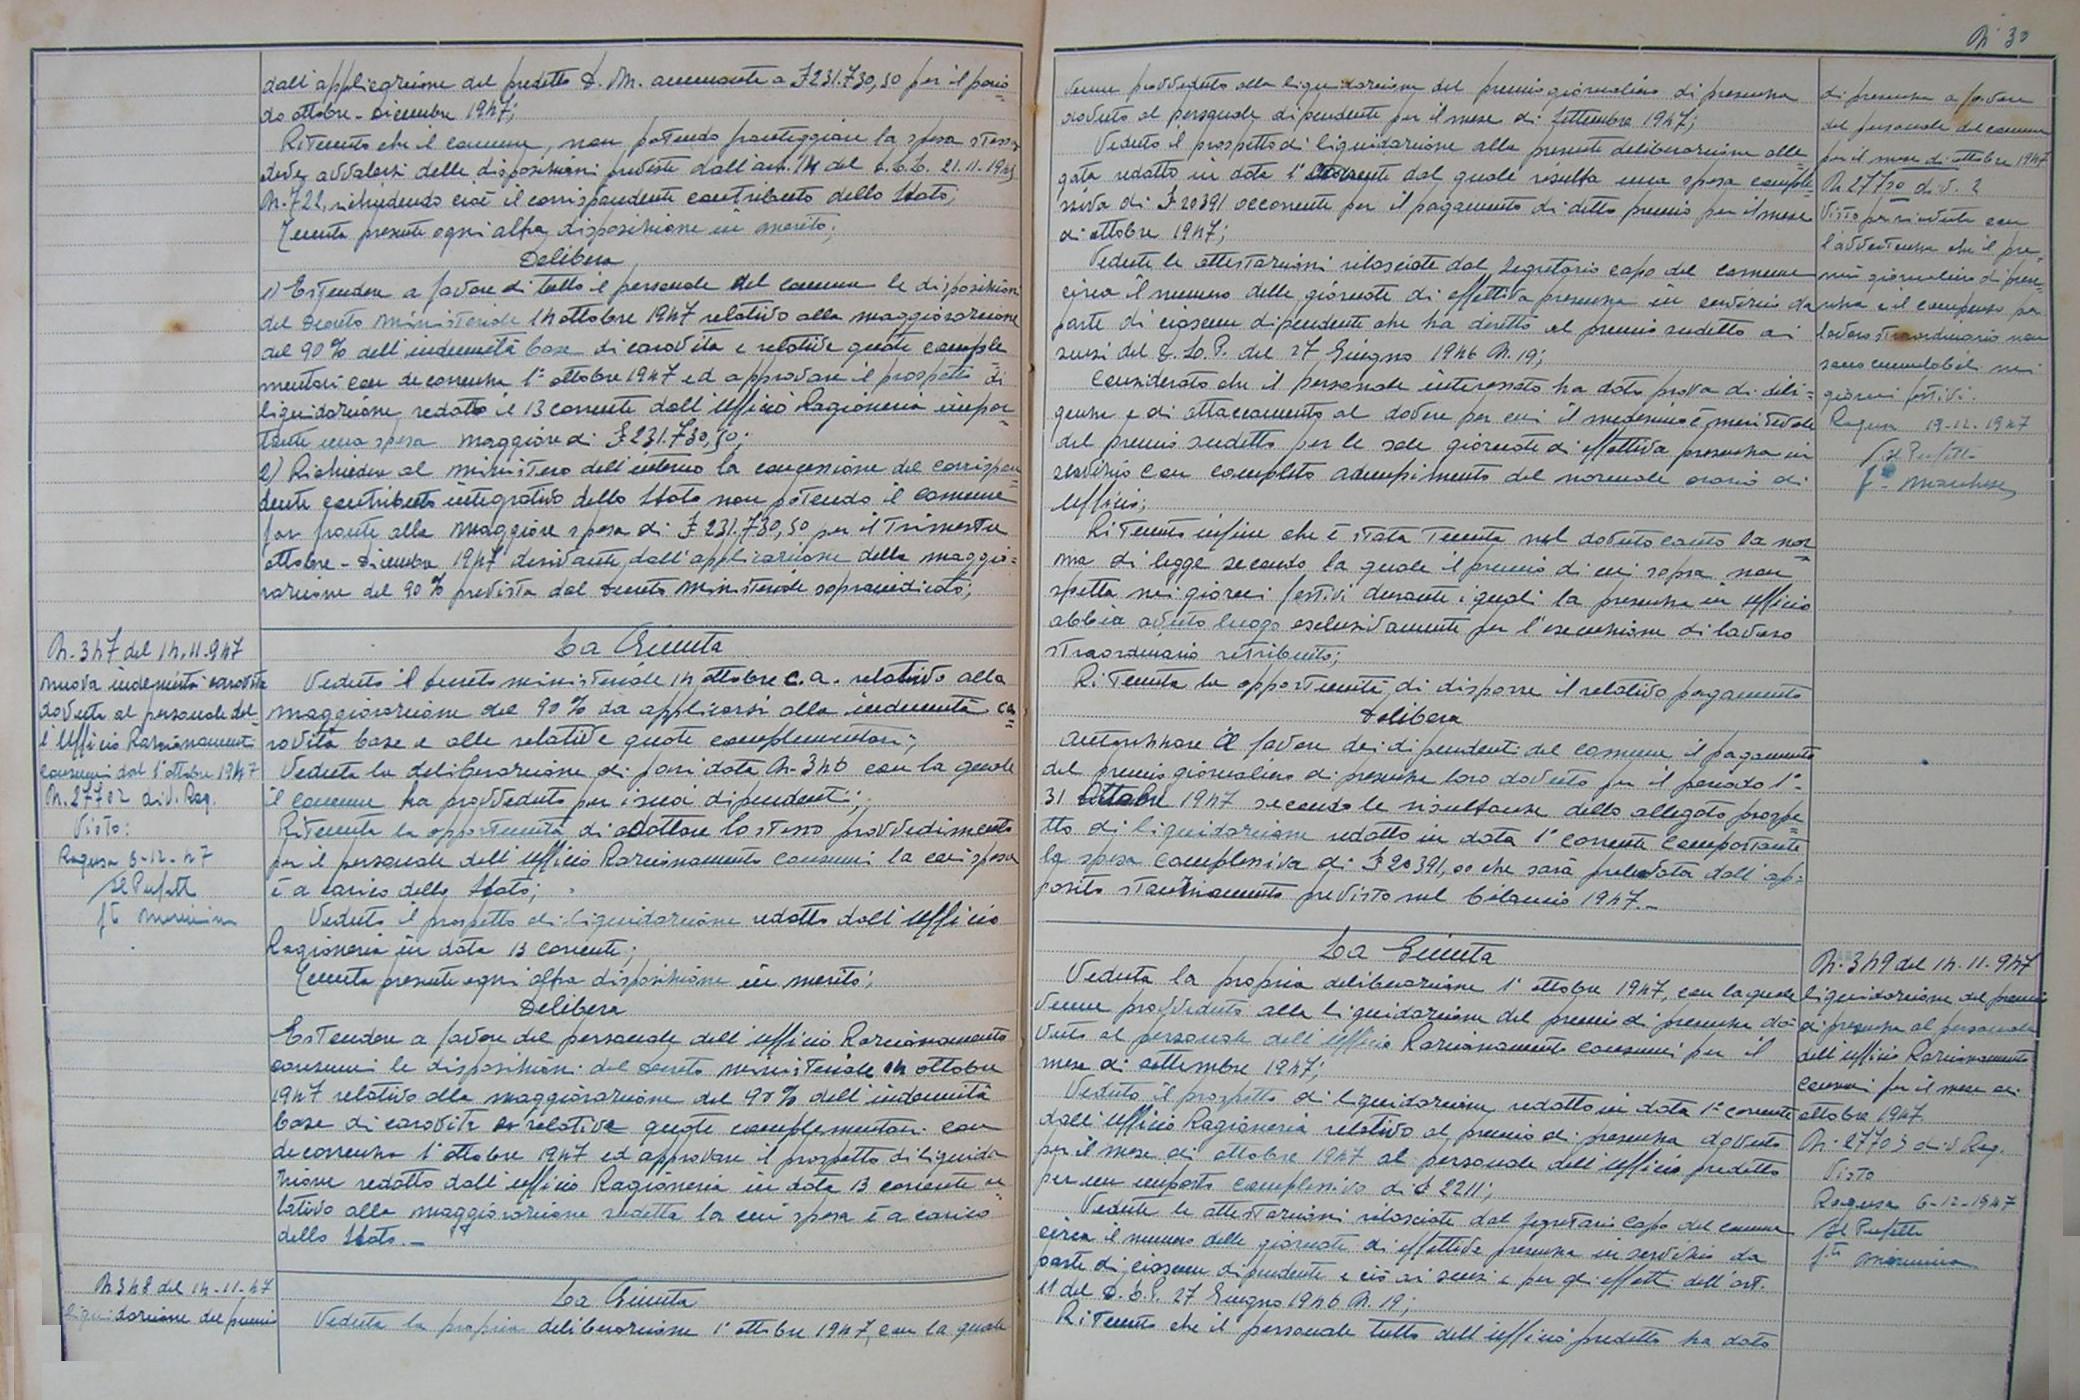 dall'applicazione del predetto D. M. ammonta a £231.730,50 per il perio=
do ottobre - Dicembre 1947;
Ritenuto che il comune, non potendo fronteggiare la spesa stessa
deve avvalersi delle disposizioni previste dall'art. 14 del 21.11.1945
N. 722, richiedendo cioè il corrispondente contributo dello Stato;
Tenuta presente ogni altra disposizione in merito;
Delibera
1) Estendere a favore di tutto il personale del comune le disposizioni
del Decreto Ministeriale 14 ottobre 1947 relativo alla maggiorazione
del 90% dell'indennità base di carovita e relative quote comple
mentari con decorrenza 1° ottobre 1947 ed approvare il prospetto di
liquidazione redatto il 13 corrente dall'Ufficio Ragioneria impor=
tante una spesa maggiore di £231.730,50;
2) Richiedere al ministero dell'interno la concessione del corrispon=
dente contributo integrativo dello Stato non potendo il comune
far fronte alla maggiore spesa di £231.730,50 per il Trimestre
ottobre - Dicembre 1947 derivante dall'applicazione della maggio=
razione del 90% prevista dal Decreto Ministeriale sopraindicato;
N. 347 del 14.11.947
nuova indennità carovita
dovuta al personale del=
l'Ufficio Razionamento
consumi dal 1° ottobre 1947
N. 27702 div. Rag.
Visto:
Ragusa 6-12-47
Il Prefetto
La Giunta
Veduto il Decreto ministeriale 14 ottobre c.a. relativo alla
maggiorazione del 90% da applicarsi alla indennità ca=
rovita base e alle relative quote complementari;
Veduta la deliberazione di pari data N. 346 con la quale
il comune ha provveduto per i suoi dipendenti;
Ritenuta la opportunità di adottare lo stesso provvedimento
per il personale dell'Ufficio Razionamento consumi la cui spesa
è a carico dello Stato;
Veduto il prospetto di liquidazione redatto dall'Ufficio
Ragioneria in data 13 corrente;
Tenuta presente ogni altra disposizione in merito;
Delibera
Estendere a favore del personale dell'ufficio Razionamento
consumi le disposizioni del Decreto ministeriale 14 ottobre
1947 relativo alla maggiorazione del 90% dell'indennità
base di carovita e relative quote complementari con
decorrenza 1° ottobre 1947 ed approvare il prospetto di liquida
zione redatto dall'ufficio Ragioneria in data 13 corrente re=
lativo alla maggiorazione sudetta la cui spesa è a carico
dello Stato.-
N 348 del 14-11-47
liquidazione del premio
La Giunta
Veduta la propria deliberazione 1° ottobre 1947, con la quale
N° 30
venne provveduto alla liquidazione del premio giornaliero di presenza
dovuto al personale dipendente per il mese di Settembre 1947;
Veduto il prospetto di liquidazione alla presente deliberazione alle=
gata redatto in data 1° corrente dal quale risulta una spesa comples=
siva di £20391 occorrente per il pagamento di detto premio per il mese
di ottobre 1947;
Vedute le attestazioni rilasciate dal Segretario capo del comune
circa il numero delle giornate di effettiva presenza in servizio da
parte di ciascun dipendente che ha diritto al premio sudetto ai
sensi del del 27 Giugno 1946 N. 19;
Considerato che il personale interessato ha dato prova di dili=
genza e di attaccamento al dovere per cui il medesimo è meritevole
del premio sudetto per le sole giornate di effettiva presenza in
servizio con completo adempimento del normale orario di
ufficio;
Ritenuto infine che è stata Tenuta nel dovuto conto la nor=
ma di legge secondo la quale il premio di cui sopra non
spetta nei giorni festivi durante i quali la presenza in ufficio
abbia avuto luogo esclusivamente per l'esecuzione di lavoro
straordinario retribuito;
Ritenuta la opportunità di disporre il relativo pagamento
Delibera
Autorizzare a favore dei dipendenti del comune il pagamento
del premio giornaliero di presenza loro dovuto per il periodo 1°-
31 Ottobre 1947 secondo le risultanze dello allegato prospe=
tto di liquidazione redatto in data 1° corrente comportante
la spesa complessiva di £20391,00 che sarà prelevata dall'ap=
posito stanziamento previsto nel bilancio 1947.-
di presenza a favore
del personale del comune
per il mese di ottobre 1947
N 27730 div. 2
Visto con
l'avvertenza che il pre=
mio giornaliero di presen=
za e il compenso per
lavoro straordinario non
sono cumulabili nei
giorni festivi.
Ragusa 19-12-1947
Il Prefetto
La Giunta
Veduta la propria deliberazione 1° ottobre 1947, con la quale
venne provveduto alla liquidazione del premio di presenza do=
vuto al personale dell'Ufficio Razionamento consumi per il
mese di settembre 1947;
Veduto il prospetto di liquidazione redatto in data 1° corrente
dall'Ufficio Ragioneria relativo al premio di presenza dovuto
per il mese di ottobre 1947 al personale dell'Ufficio predetto
per un importo complessivo di £ 2211;
Vedute le attestazioni rilasciate dal Segretario Capo del comune
circa il numero delle giornate di effettiva presenza in servizio da
parte di ciascun dipendente e ciò ai sensi e per gli effetti dell'art.
11 del 27 Giugno 1946 N. 19;
Ritenuto che il personale tutto dell'ufficio predetto ha dato
N. 349 del 14.11.947
liquidazione del premio
di presenza al personale
dell'ufficio Razionamento
Consumi per il mese di
ottobre 1947.
N. 27703 div Rag.
Visto
Ragusa 6-12-1947
Il Prefetto